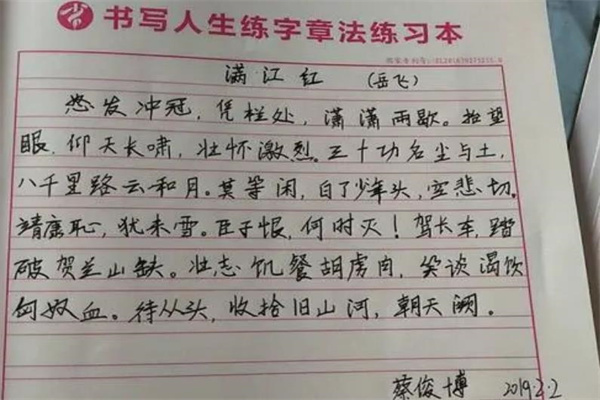 书写人生练字章法练习本
满江红 (岳飞)
怒发冲冠，凭栏处，潇潇雨歇。抬望
眼，仰天长啸，壮怀激烈。三十功名尘与土，
八千里路云和月。莫等闲，白了少年头，空悲切。
靖康耻，犹未雪。臣子恨，何时灭！驾长车，踏
破贺兰山缺。壮志饥餐胡虏肉，笑谈渴饮
匈奴血。待从头，收拾旧山河，朝天阙。
蔡俊博 2019.2.2